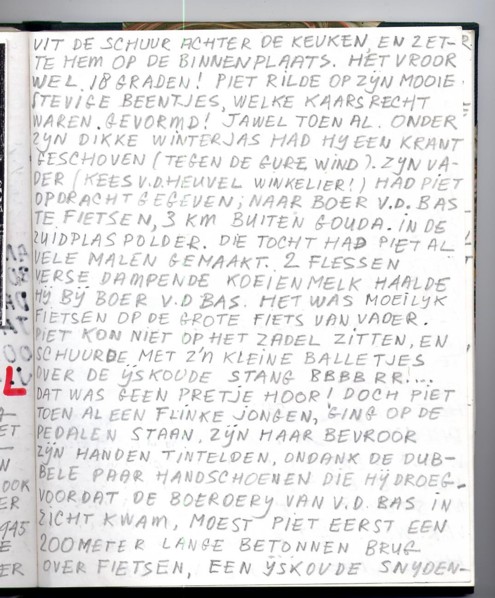 UIT DE SCHUUR ACHTER DE KEUKEN, EN ZET-
TE HEM OP DE BINNENPLAATS. HET VROOR
WEL 18 GRADEN! PIET RILDE OP ZYN MOOIE
STEVIGE BEENTJES, WELKE KAARSRECHT
WAREN GEVORMD! JAWEL TOEN AL. ONDER
ZYN DIKKE WINTERJAS HAD HY EEN KRANT
GESCHOVEN (TEGEN DE GURE WIND). ZYN VA-
DER (KEES V.D. HEUVEL WINKELIER!) HAD PIET
OPDRACHT GEGEVEN; NAAR BOER V.D. BAS
TE FIETSEN, 3 KM BUITEN GOUDA. IN DE
ZUIDPLASPOLDER. DIE TOCHT HAD PIET AL
VELE MALEN GEMAAKT. 2 FLESSEN
VERSE DAMPENDE KOEIENMELK HAALDE
HY BY BOER V.D BAS. HET WAS MOEILYK
FIETSEN OP DE GROTE FIETS VAN VADER.
PIET KON NIET OP HET ZADEL ZITTEN, EN
SCHUURDE MET Z'N KLEINE BALLETJES
OVER DE YSKOUDE STANG BBBB RR!...
DAT WAS GEEN PRETJE HOOR! DOCH PIET
TOEN AL EEN FLINKE JONGEN, GING OP DE
PEDALEN STAAN, ZYN HAAR BEVROOR
ZYN HANDEN TINTELDEN, ONDANK DE DUB-
BELE PAAR HANDSCHOENEN DIE HY DROEG.
VOORDAT DE BOEROERY VAN V.D. BAS IN
ZICHT KWAM, MOEST PIET EERST EEN
200 METER LANGE BETONNEN BRUG
OVER FIETSEN, EEN YSKOUDE SNYDEN-
L
ET
N
OOK
ER
1945
E
ER